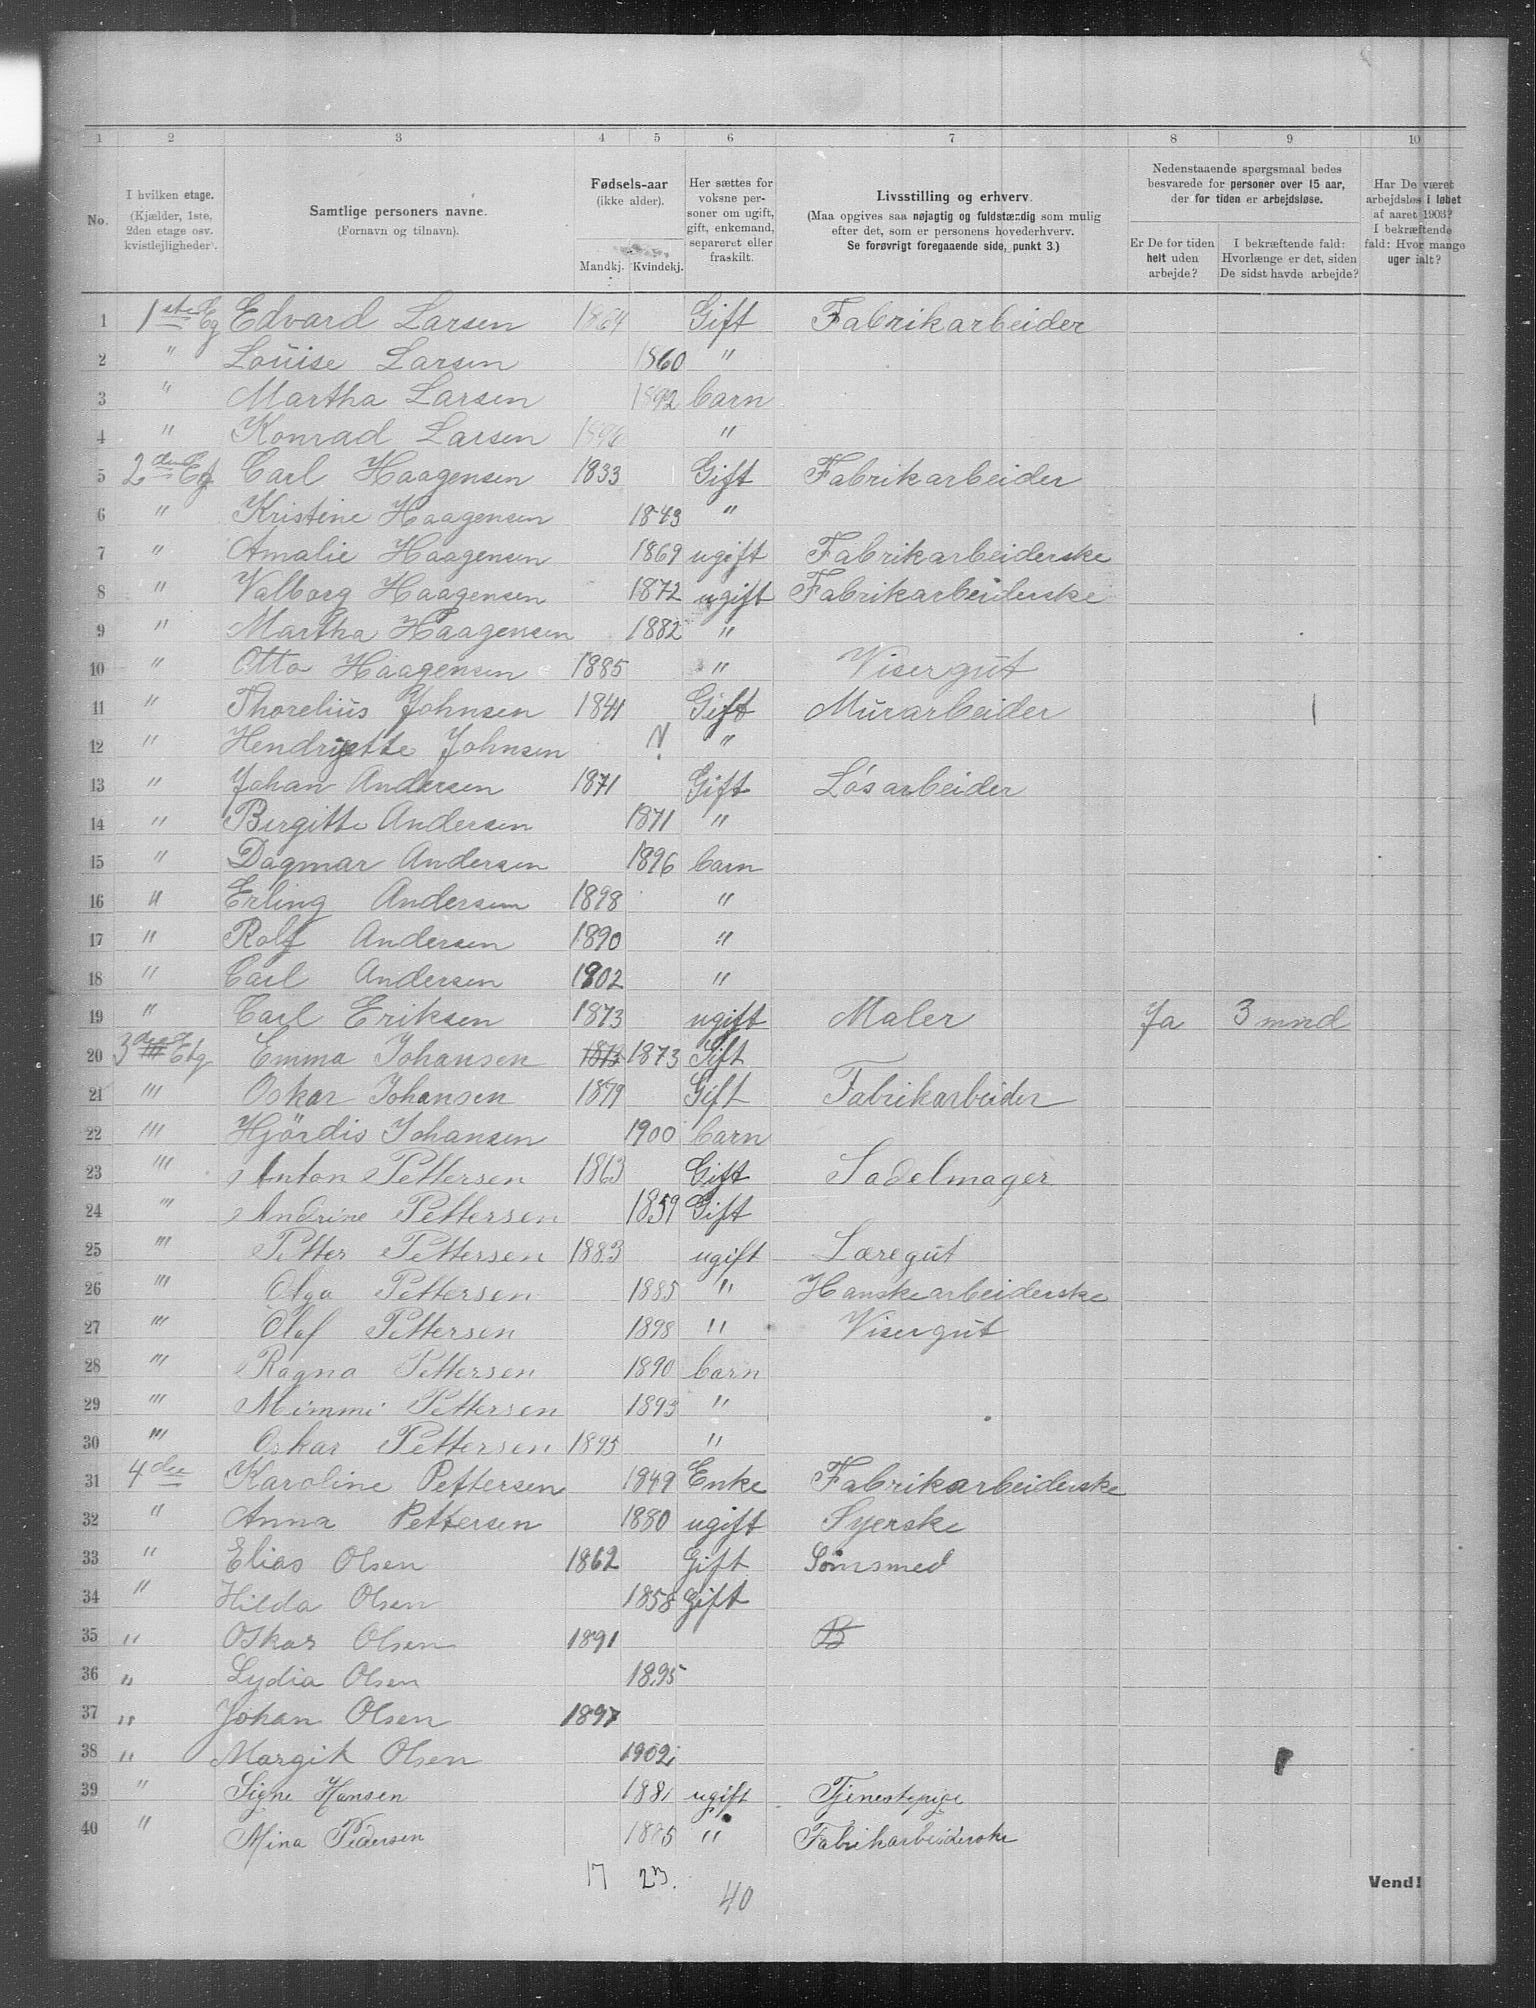 1 2 3 4 5 6 7 8 9 10
No.
I hvilken etage. (Kjælder, 1ste, 2den etage osv. kvistlejligheder).
Samtlige personers navne. (Fornavn og tilnavn).
Fødsels-aar (ikke alder). Mandkj. Kvindekj.
Her sættes for voksne personer om ugift, gift, enkemand, separeret eller fraskilt.
Livsstilling og erhverv. (Maa opgives saa nøjagtig og fuldstændig som mulig efter det, som er personens hovederhverv. Se forøvrigt foregaaende side, punkt 3.)
Nedenstaaende spørgsmaal bedes besvarede for personer over 15 aar, der for tiden er arbejdsløse.
Er De for tiden helt uden arbejde?
I bekræftende fald: Hvorlænge er det, siden De sidst havde arbejde?
Har De været arbejdsløs i løbet af aaret 1903? I bekræftende fald: Hvor mange uger ialt?
1 1ste Etg Edvard Larsen 1864 Gift Fabrikarbeider
2 " Louise Larsen 1860 "
3 " Martha Larsen 1892 barn
4 " Konrad Larsen 1896 "
5 2den Etg Carl Haagensen 1833 Gift Fabrikarbeider
6 " Kristine Haagensen 1843 "
7 " Amalie Haagensen 1869 ugift Fabrikarbeiderske
8 " Valborg Haagensen 1872 ugift Fabrikarbeiderske
9 " Martha Haagensen 1882 "
10 " Otto Haagensen 1885 " Visergut
11 " Thorelius Johnsen 1841 Gift Murarbeider
12 " Hendriette Johnsen "
13 " Johan Andersen 1871 Gift Lösarbeider
14 " Birgitte Andersen 1871 "
15 " Dagmar Andersen 1896 barn
16 " Erling Andersen 1898 "
17 " Rolf Andersen 1890 "
18 " Carl Andersen 1902 "
19 " Carl Eriksen 1873 ugift Maler Ja 3 mnd
20 3die Etg Emma Johansen 1873 1873 Gift
21 "' Oskar Johansen 1879 Gift Fabrikarbeider
22 "' Hjördis Johansen 1900 barn
23 "' Anton Pettersen 1863 Gift Sadelmager
24 "' Andrine Pettersen 1859 Gift
25 "' Petter Pettersen 1883 ugift Læregut
26 "' Olga Pettersen 1885 " Hanskearbeiderske
27 "' Olaf Pettersen 1898 " Visergut
28 "' Ragna Pettersen 1890 barn
29 "' Mimmi Pettersen 1893 "
30 "' Oskar Pettersen 1895 "
31 4de Karoline Pettersen 1849 Enke Fabrikarbeiderske
32 " Anna Pettersen 1880 ugift Syerske
33 " Elias Olsen 1862 Gift Sömsmed
34 " Hilda Olsen 1858 Gift
35 " Oskar Olsen 1891 B
36 " Lydia Olsen 1895
37 " Johan Olsen 1897
38 " Margit Olsen 1902
39 " Signe Hansen 1881 ugift Tjenestepige
40 " Mina Pedersen 1885 " Fabrikarbeiderske
17 23.
40
Vend!